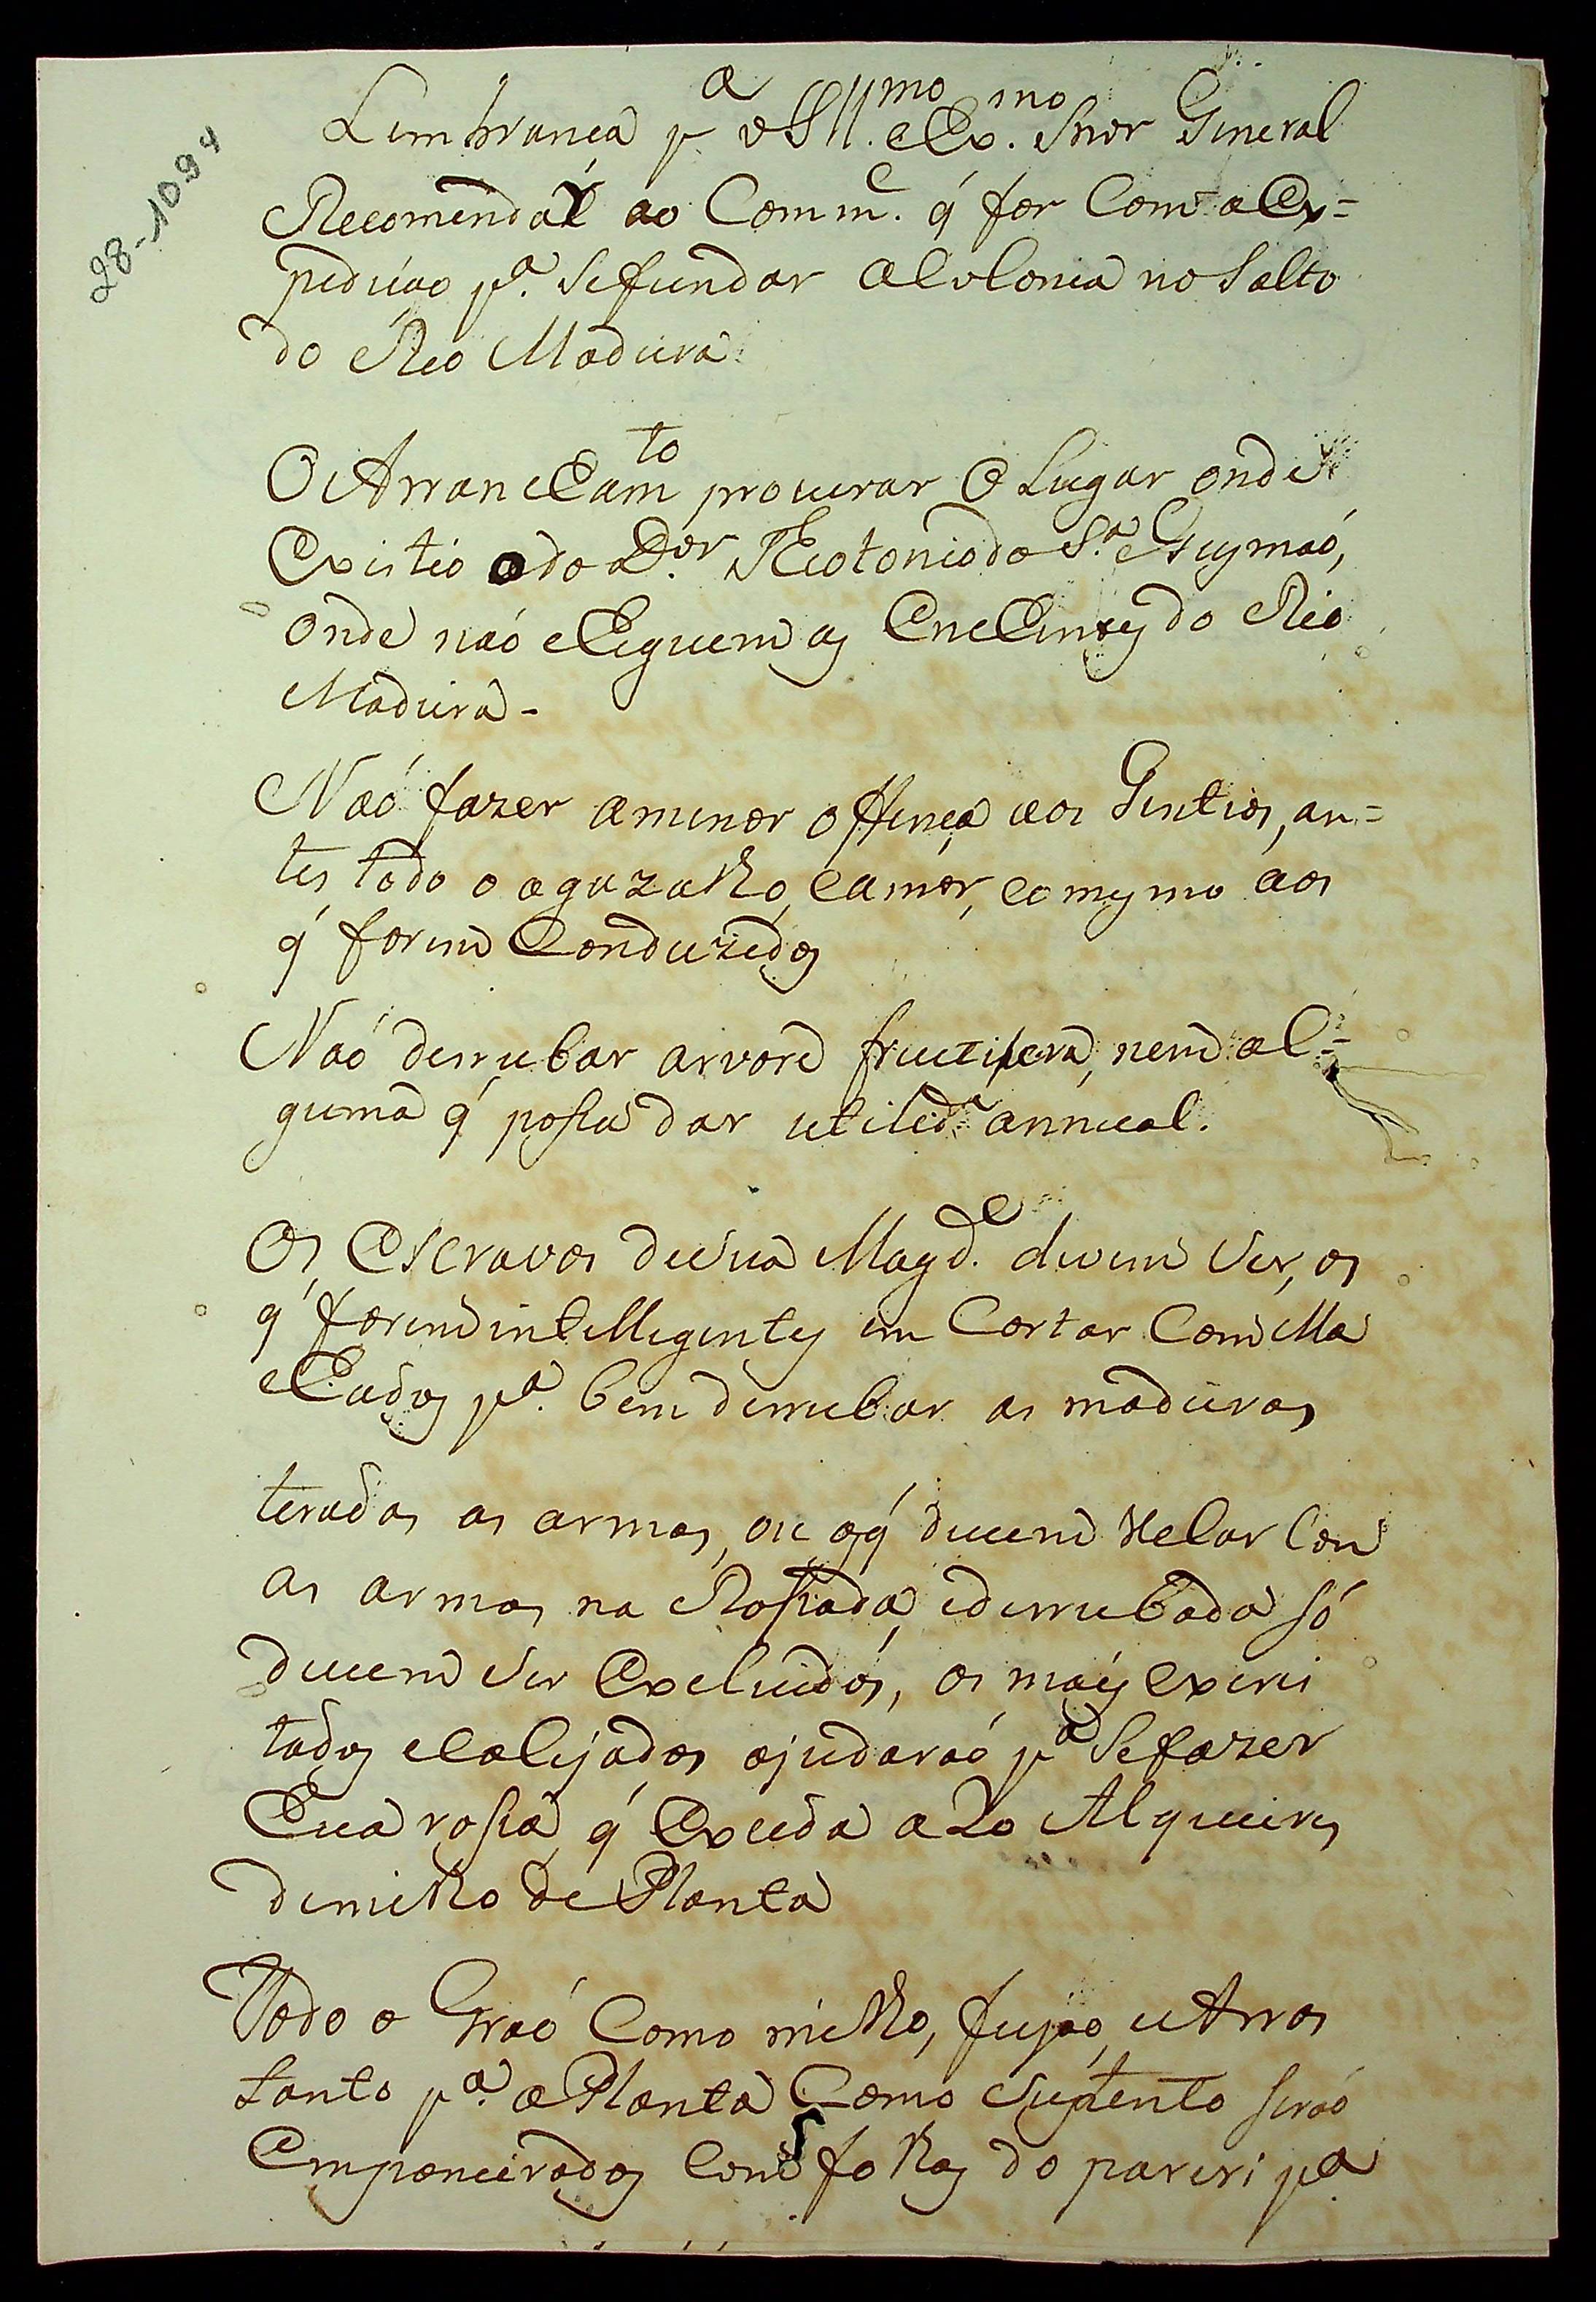 28-1094
Lembrança p.ª o Ill.mo e Ex.mo Snor General
Recomendar ao Comm.e q̃ for Com a Ex=
pedição p.ª Sefundar a Colonia no Salto
do Rio Madeira
O Arranchamto procurar o Lugar onde
Existio o do D.or Theotonio da S.ª Gusmaõ,
onde naõ cheguem as Enchentes do Rio
Madeira -
Naõ fazer amenor offença aos Gentios, an=
tes todo o agazalho, eamor, eo mesmo aos
q̃ forem Conduzidos
Naõ derrubar arvore fructifera, nem al=
guma q̃ possa dar utilid.e annual.
Os Escravos de Sua Magd.e devem Ser, os
q̃ forem intelligentes em Cortar Com Ma
chados p.ª bem derrubar as madeiras
tiradas as armas, ou os q̃ devem velar Com
as armas na Rossada, ederrubada só
devem Ser Excluidos, os mais exerci
tados ealejados ajudaraõ p.ª Sefazer
hua rossa q̃ Exceda a 20 Alqueires
demilho de Planta
Todo o Graõ Como milho, feijaõ, eArros
tanto p.ª a Planta Como Sustento seraõ
Empaneirados Com folhas do pareri p.ª